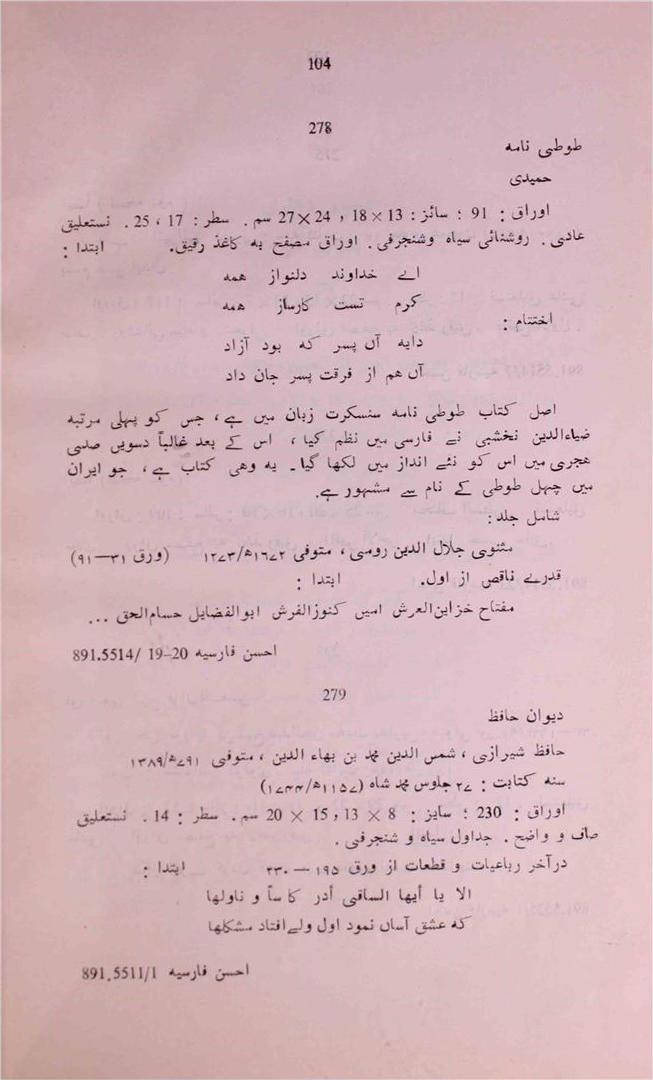 104
278
طوطی نامه
حمیدی
اوراق : 91 ؛ سائز : 13 × 18 ، 24 × 27 سم . سطر : 17 ، 25 . نستعلیق
عادی . روشنائی سیاه وشنجرفی . اوراق مصفح به کاغذ رقیق . ابتدا :
اے خداوند دلنواز همه
کرم تست کارساز همه
اختتام :
دایه آں پسر که بود آزاد
آں هم از فرقت پسر جان داد
اصل کتاب طوطی نامه سنسکرت زبان میں ہے ، جس کو پہلی مرتبه
ضیاءالدین نخشبی نے فارسی میں نظم کیا ، اس کے بعد غالباً دسویں صدی
هجری میں اس کو نئے انداز میں لکھا گیا ۔ یه وهی کتاب ہے ، جو ایران
میں چهل طوطی کے نام سے مشہور ہے .
شامل جلد :
مثنوی جلال الدین رومی ، متوفی ۱۶۷۲ھ/۱۲۷۳ (ورق ۳۱—۹۱)
قدرے ناقص از اول . ابتدا :
مفتاح خزاین العرش امیں کنوزالفرش ابوالفضایل حسام‌الحق ...
احسن فارسیه 20–19 /891.5514
279
دیوان حافظ
حافظ شیرازی ، شمس الدین محمد بن بهاء الدین ، متوفی ۷۹۱ھ/۱۳۸۹
سنه کتابت : ۲۷ جلوس محمد شاه (۱۱۵۷ھ/۱۷۴۴)
اوراق : 230 ؛ سایز : 8 × 13 ، 15 × 20 سم . سطر : 14 . نستعلیق
صاف و واضح . جداول سیاه و شنجرفی .
درآخر رباعیات و قطعات از ورق ۱۹۵ — ۲۳۰ ابتدا :
الا یا أیها الساقی أدر کاساً و ناولها
که عشق آساں نمود اول ولے افتاد مشکلها
احسن فارسیه 891.5511/1